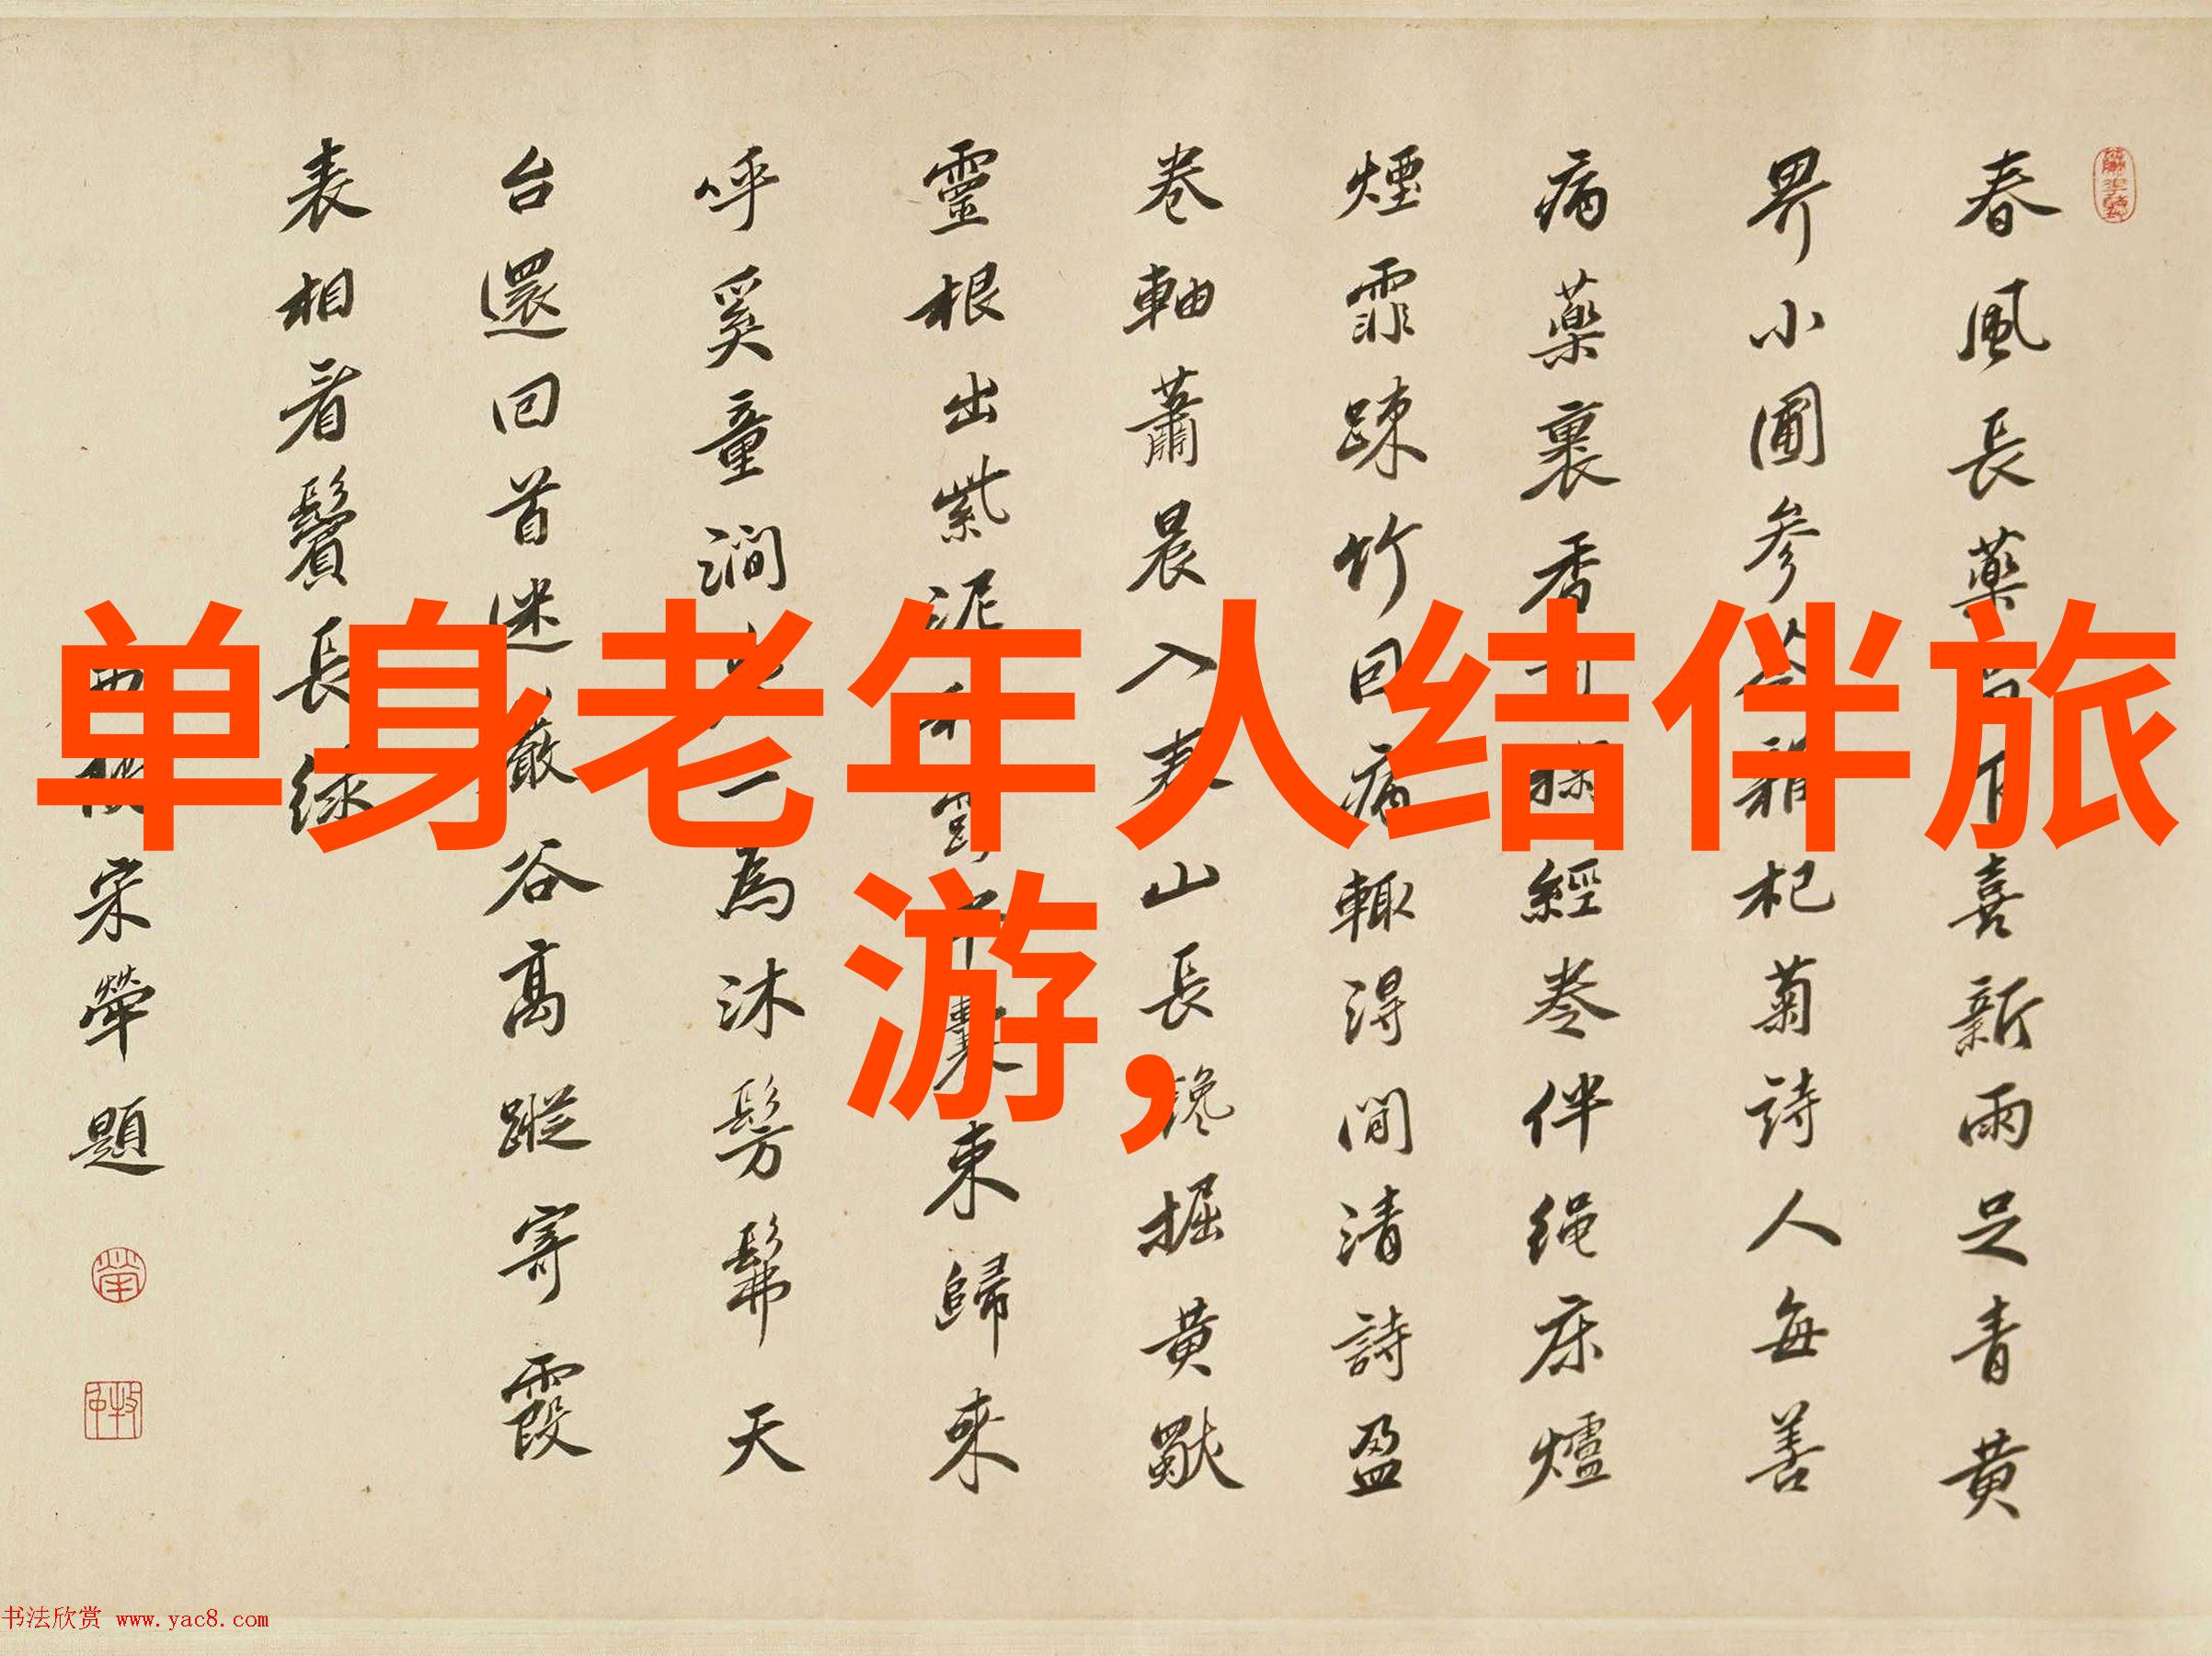 单身老年人结伴旅
游，
春風長藥喜新雨足青黄
界小圃參杞菊詩人每善
病藥裹香經卷伴绳床爐
煙霏踈竹回病輒得閒清詩盈
卷軸蕭晨入春山長鑱掘黄獨
靈根出紫泥囊東歸來
呼奚童澗一為沐髣髴天
台還回首迷巖谷高蹤寄霞
表相看鬢長綠
宋犖題
书法欣赏 www.yac8.com